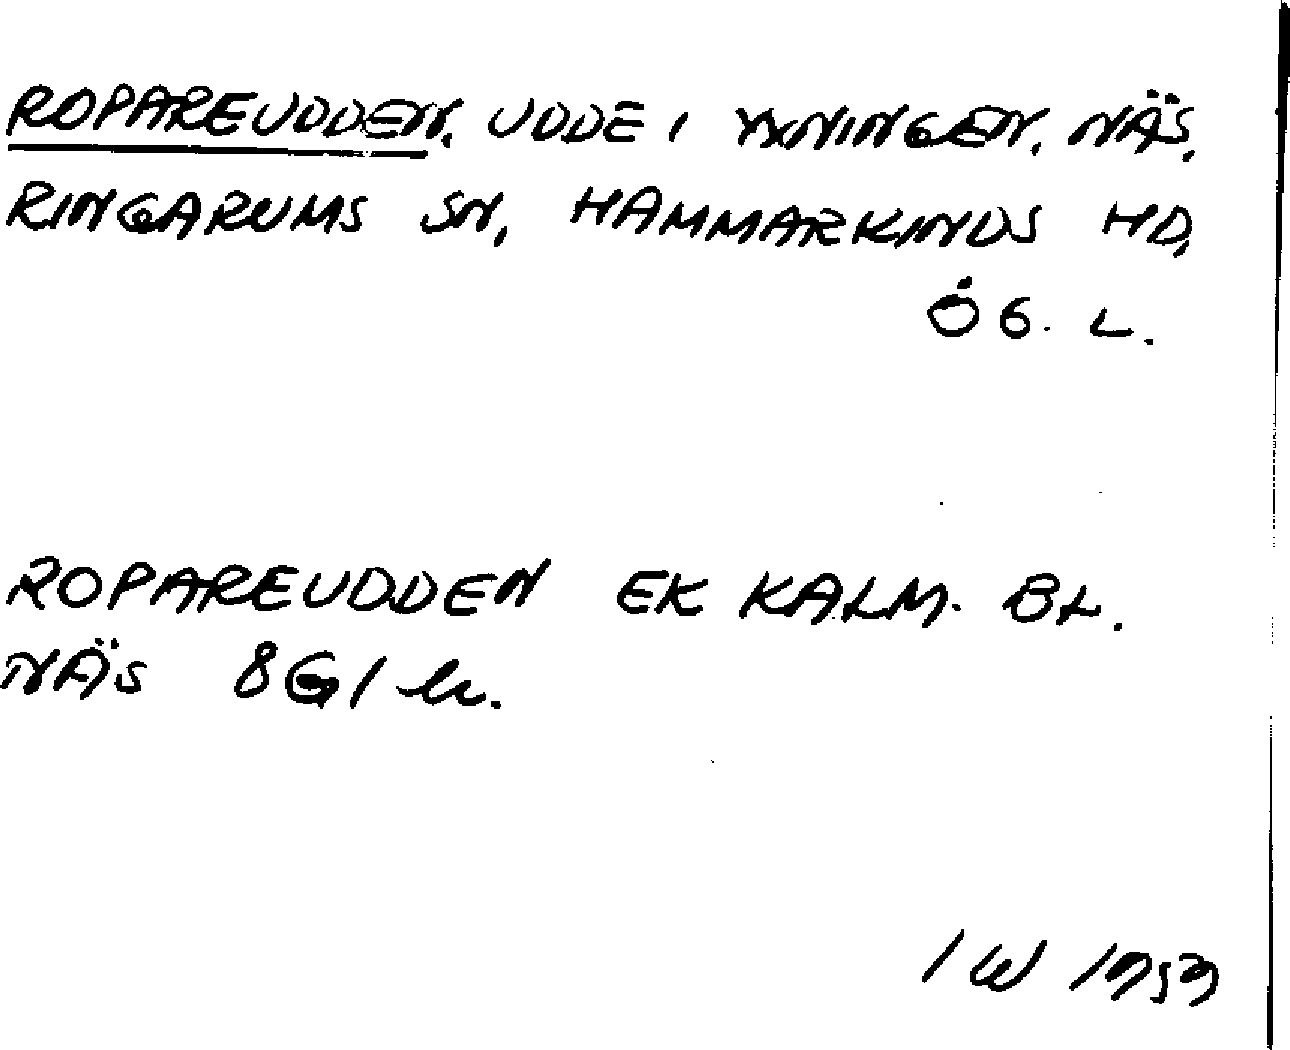 ROPAREUDDEN. UDDE I YXNINGEN. NÄS,
RINGARUMS SN, HAMMARKINDS HD,
ÖG. L.
ROPAREUDDEN EK KALM. BL.
NÄS 8G1h.
IW 1953